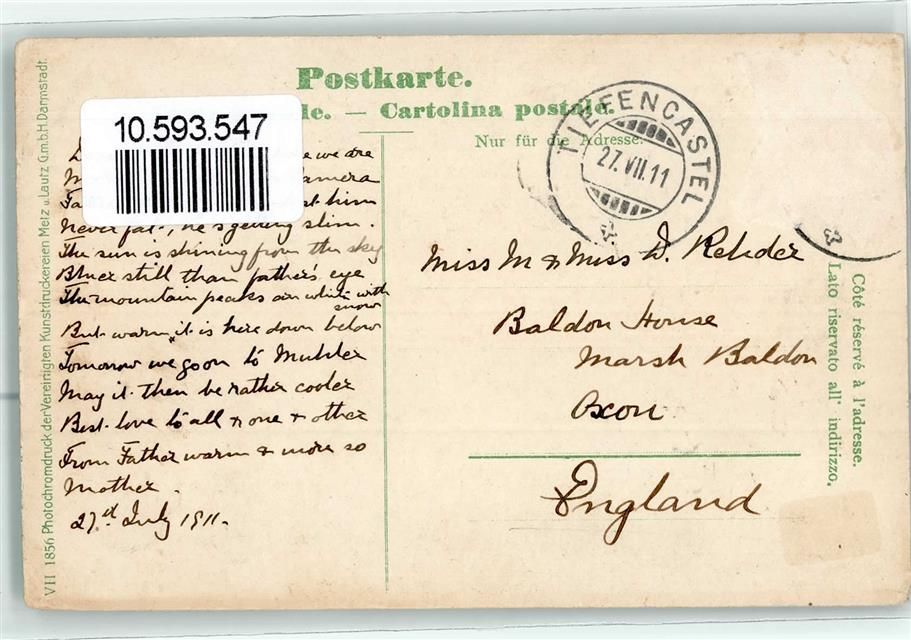 Postkarte.
le. — Cartolina postale.
Nur für die Adresse.
10.593.547
TIEFENCASTEL
27.VII.11
we are
camera
him
never fat, he's getting slim.
The sun is shining from the sky
Bluer still than father's eye
The mountain peaks are white with
snow
But warm it is here down below
Tomorrow we go on to Muhlen
May it then be rather cooler
Best love to all & one & other
From Father warm & more so
Mother.
27st July 1911.
Miss M & Miss D. Rehder
Baldon House
Marsh Baldon
Oxon
England
Côté réservé à l'adresse.
Lato riservato all' indirizzo.
VII 1856 Photochromdruck der Vereinigten Kunstdruckereien Metz u. Lautz G.m.b.H. Darmstadt.